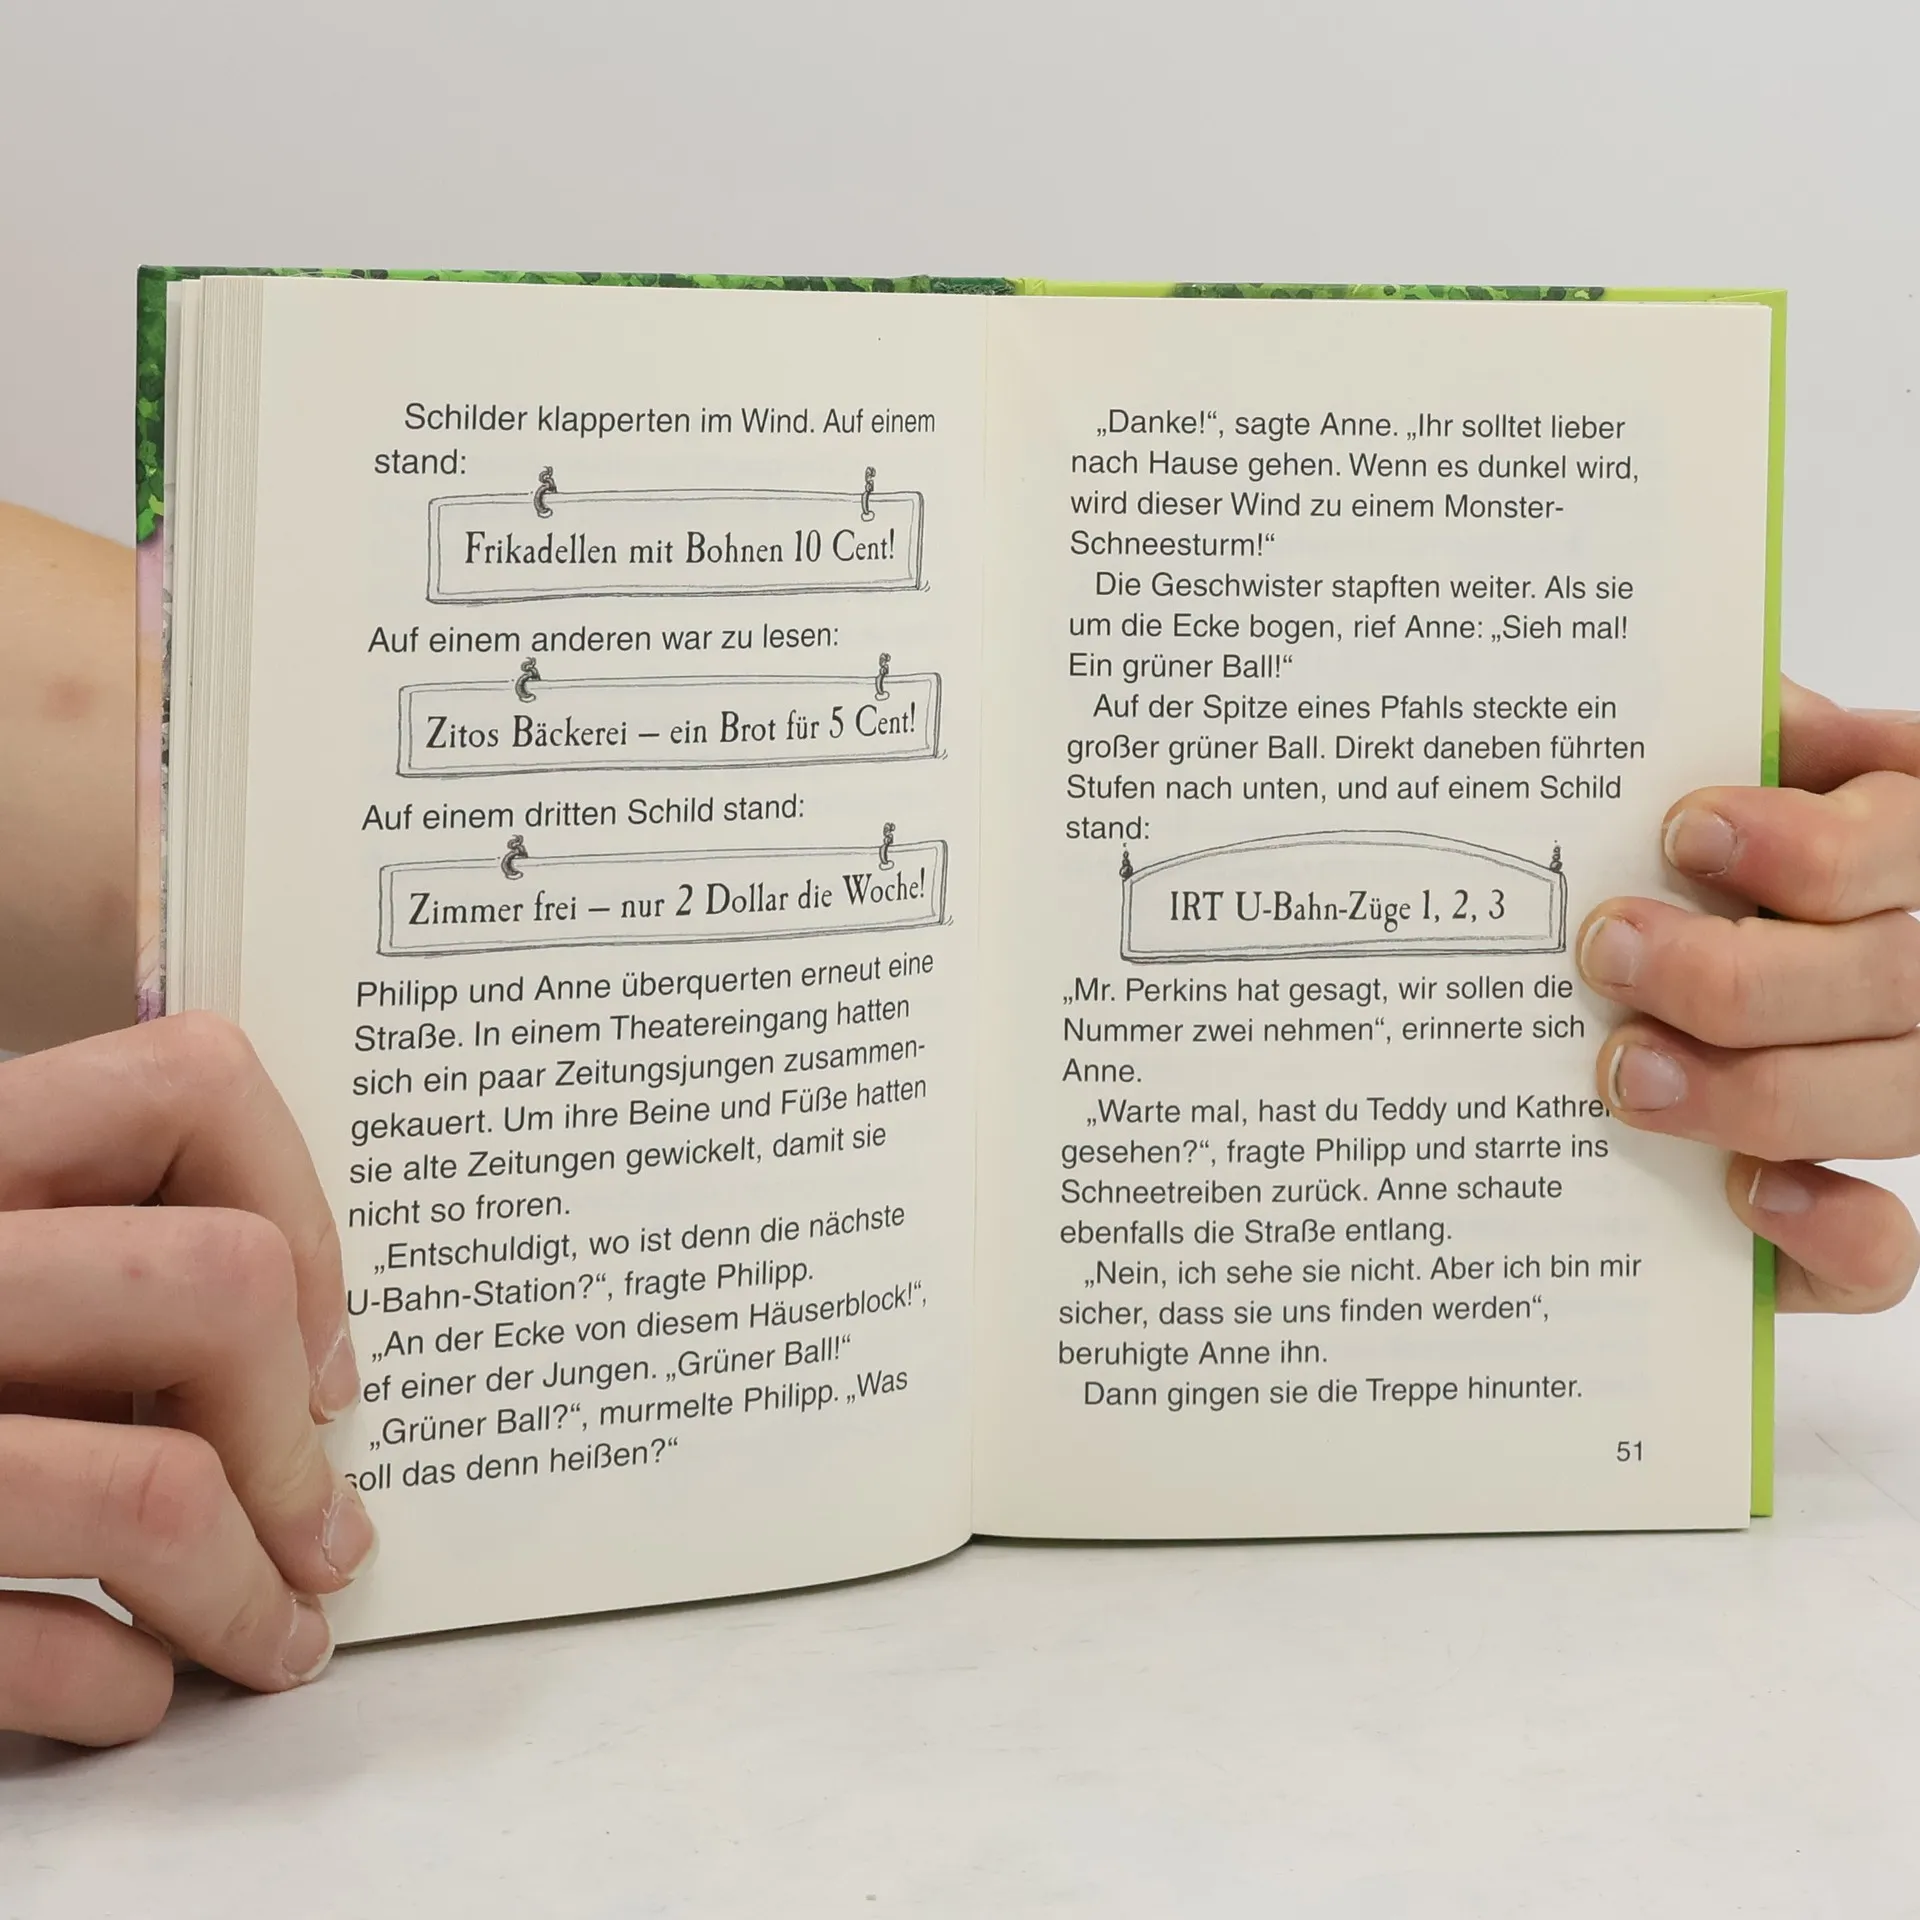 Schilder klapperten im Wind. Auf einem
stand:
Frikadellen mit Bohnen 10 Cent!
Auf einem anderen war zu lesen:
Zitos Bäckerei – ein Brot für 5 Cent!
Auf einem dritten Schild stand:
Zimmer frei – nur 2 Dollar die Woche!
Philipp und Anne überquerten erneut eine
Straße. In einem Theatereingang hatten
sich ein paar Zeitungsjungen zusammen-
gekauert. Um ihre Beine und Füße hatten
sie alte Zeitungen gewickelt, damit sie
nicht so froren.
„Entschuldigt, wo ist denn die nächste
U-Bahn-Station?“, fragte Philipp.
„An der Ecke von diesem Häuserblock!“,
einer der Jungen. „Grüner Ball!“
„Grüner Ball?“, murmelte Philipp. „Was
soll das denn heißen?“
„Danke!“, sagte Anne. „Ihr solltet lieber
nach Hause gehen. Wenn es dunkel wird,
wird dieser Wind zu einem Monster-
Schneesturm!“
Die Geschwister stapften weiter. Als sie
um die Ecke bogen, rief Anne: „Sieh mal!
Ein grüner Ball!“
Auf der Spitze eines Pfahls steckte ein
großer grüner Ball. Direkt daneben führten
Stufen nach unten, und auf einem Schild
stand:
IRT U-Bahn-Züge 1, 2, 3
„Mr. Perkins hat gesagt, wir sollen die
Nummer zwei nehmen“, erinnerte sich
Anne.
„Warte mal, hast du Teddy und
gesehen?“, fragte Philipp und starrte ins
Schneetreiben zurück. Anne schaute
ebenfalls die Straße entlang.
„Nein, ich sehe sie nicht. Aber ich bin mir
sicher, dass sie uns finden werden“,
beruhigte Anne ihn.
Dann gingen sie die Treppe hinunter.
51